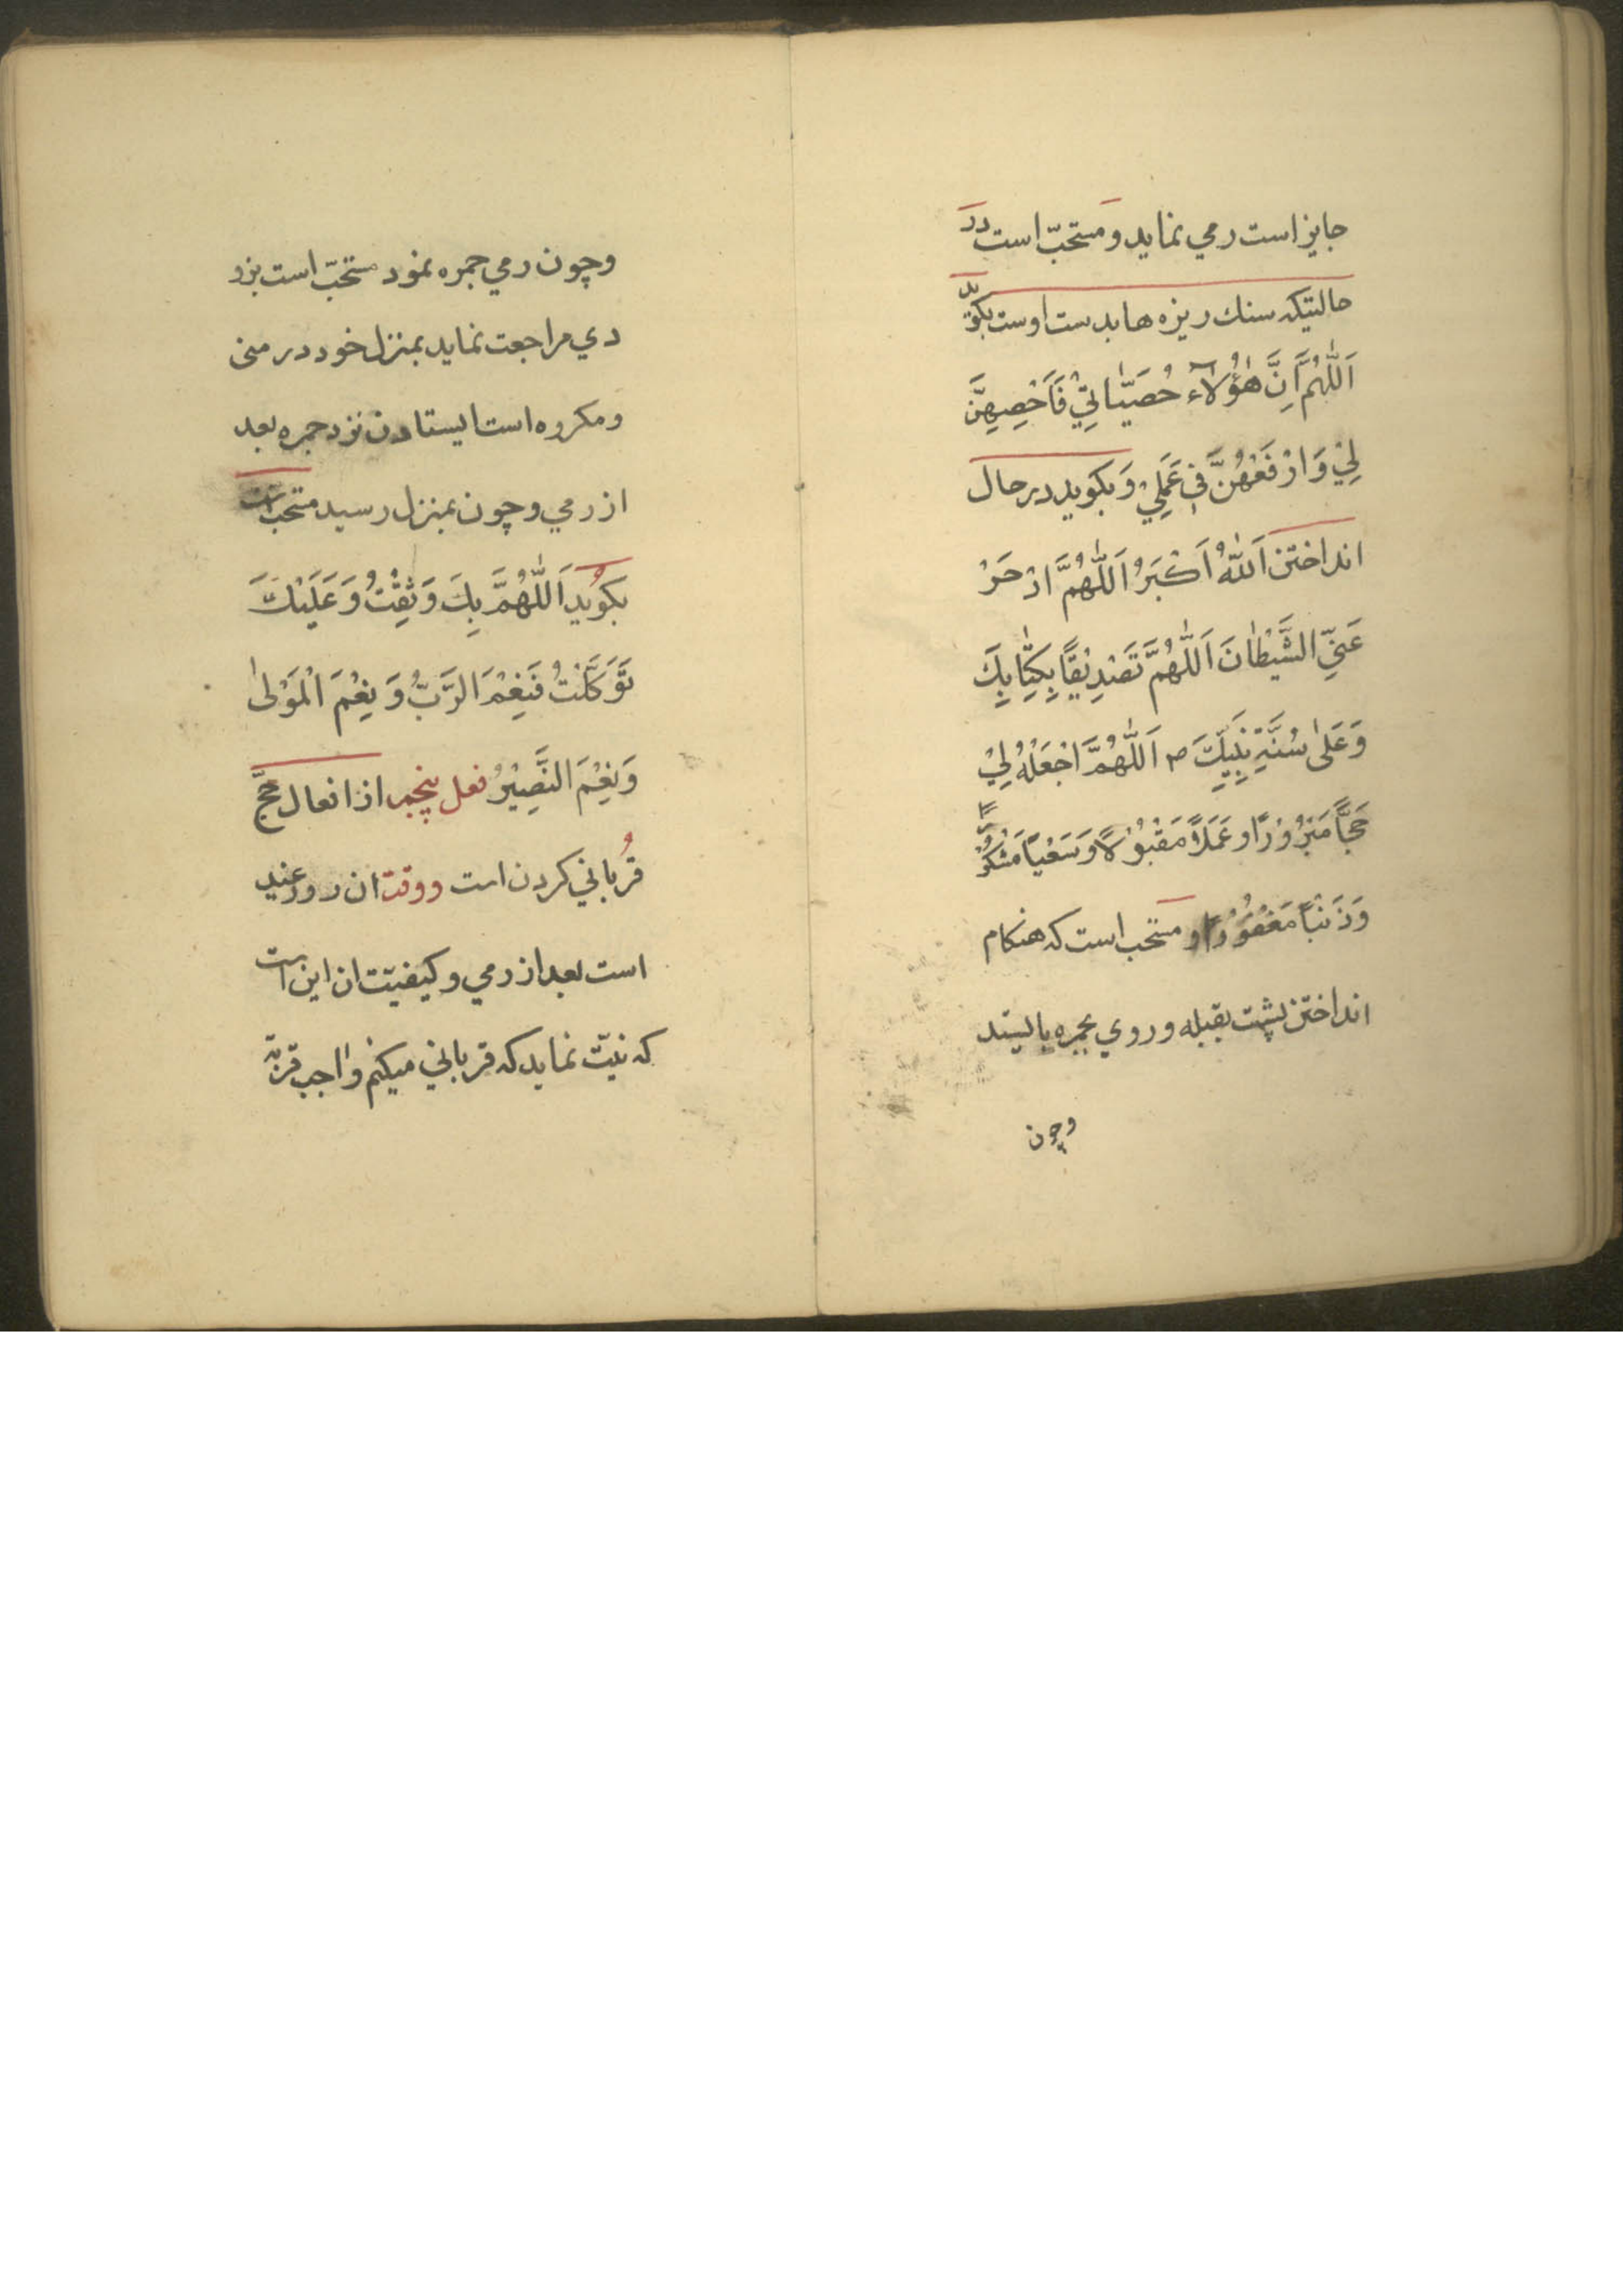 جایز است رمي نماید و مستحبّ است در
حالتیکه سنك ریزه ها بدست اوست بکوید
اَللّٰهُمَّ اِنَّ هٰؤُلآءِ حُصَيّٰاتِيْ فَاَحْصِهِنَّ
لِيْ وَارْفَعْهُنَّ فِيْ عَمَلِيْ وَ بکوید در حال
انداختن اَللّٰهُ اَكْبَرُ اَللّٰهُمَّ ادْحَرْ
عَنِّي الشَّيْطٰانَ اَللّٰهُمَّ تَصْدِيْقًا بِكِتٰابِكَ
وَعَلىٰ سُنَّةِ نَبِيِّكَ ص اَللّٰهُمَّ اجْعَلْهُ لِيْ
حَجًّا مَبْرُوْرًا و عَمَلًا مَقْبُوْلًا وَ سَعْيًا مَشْكُوْرًا
وَ ذَنْبًا مَغْفُوْرًا و مستحب است که هنکام
انداختن پشت بقبله و روي بجمره بایستد
وچون
وچون رمي جمره نمود مستحبّ است بزو
دي مراجعت نماید بمنزل خود در منی
ومکروه است ایستادن نزد جمره بعد
از رمي وچون بمنزل رسید مستحب است
بکوید اَللّٰهُمَّ بِكَ وَثِقْتُ وَعَلَيْكَ
تَوَكَّلْتُ فَنِعْمَ الرَّبُّ وَ نِعْمَ الْمَوْلىٰ
وَنِعْمَ النَّصِيْرُ فعل پنجم از افعال حجّ
قُرباني کردن است ووقت ان روز عید
است بعد از رمي و کیفیّت ان این است
که نیّت نماید که قرباني میکنم واجب قربة